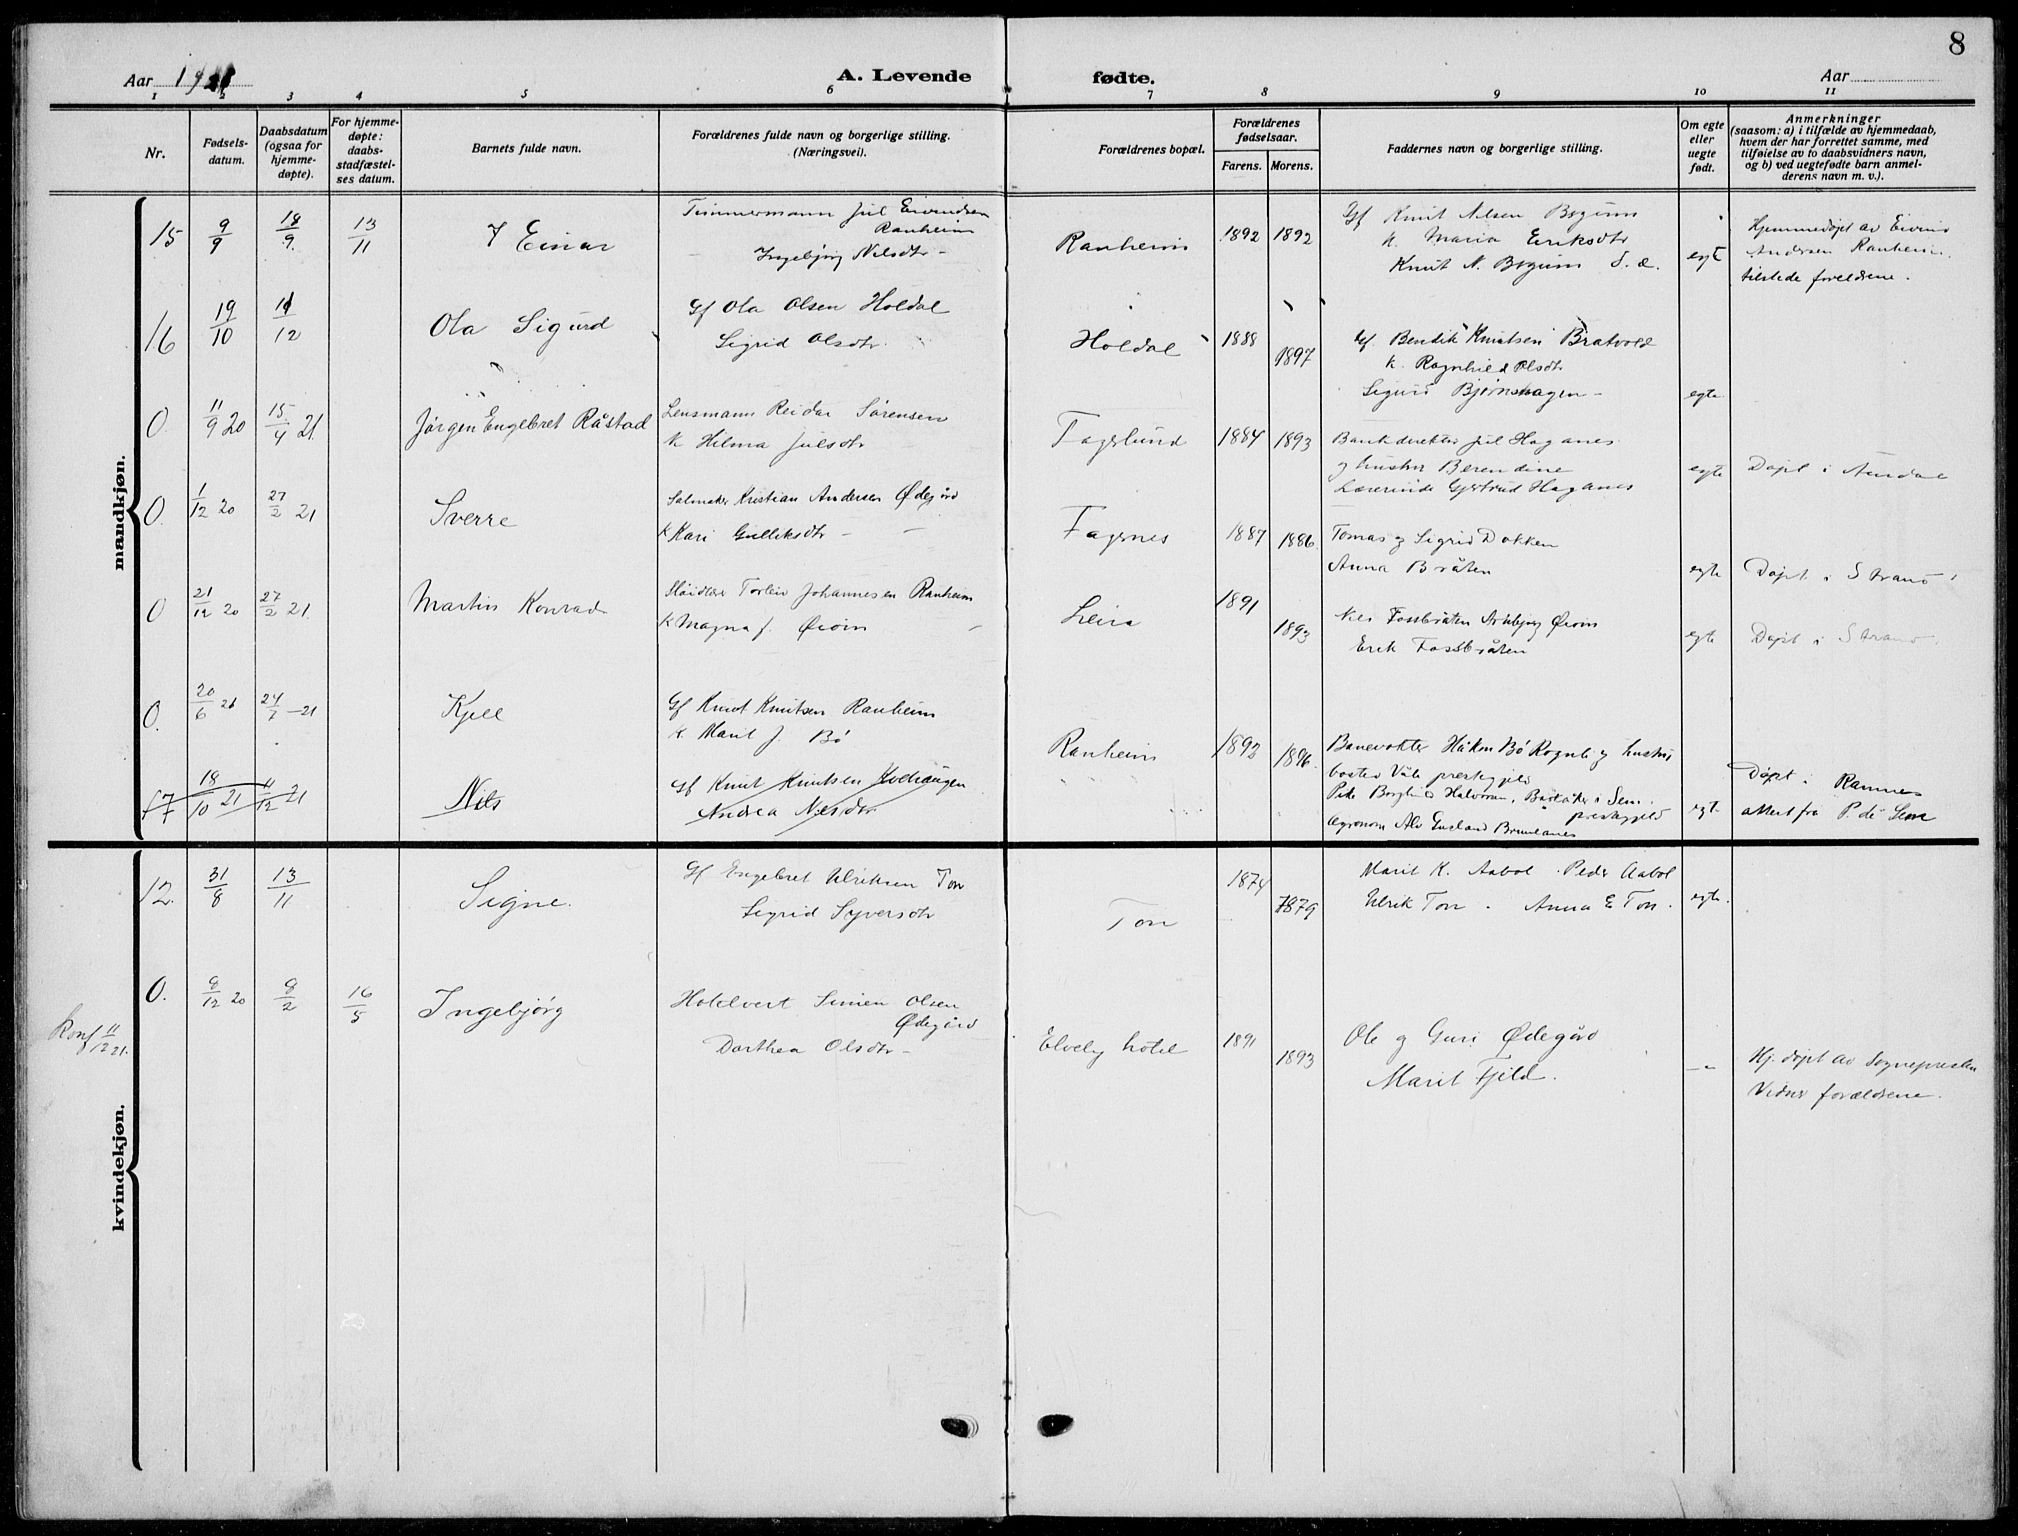 8
Aar 1921
A. Levende fødte.
Aar
1 2 3 4 5 6 7 8 9 10 11
Nr.
Fødsels-
datum.
Daabsdatum
(ogsaa for
hjemme-
døpte).
For hjemme-
døpte:
daabs-
stadfæstel-
ses datum.
Barnets fulde navn.
Forældrenes fulde navn og borgerlige stilling.
(Næringsvei).
Forældrenes bopæl.
Forældrenes
fødselsaar.
Farens. Morens.
Faddernes navn og borgerlige stilling.
Om egte
eller
uegte
født.
Anmerkninger
(saasom: a) i tilfælde av hjemmedaab,
hvem der har forrettet samme, med
tilføielse av to daabsvidners navn,
og b) ved uegtefødte barn anmel-
derens navn m. v.).
mandkjøn.
15 9/9 18/9. 13/11 Einar
Tømmermann Jul Eivindsen
Ranheim
Ingebjørg Nilsdtr -
Ranheim 1892 1892
Gf Knut Nilsen Bøgum
K. Maria Eriksdtr
Knut N. Bøgum S. æ.
egt
Hjemmedøpt av Eivind
Andersen Ranheim.
tilstede foreldrene.
16 19/10 11/12 Ola Sigurd
Gf Ola Olsen Holdal
Sigrid Olsdtr.
Holdal 1888 1897
Gf Bendik Knutsen Bratvold
K. Ragnhild Olsdtr
Sigurd Bjørnshagen -
egte
0 11/9 20 15/4 21 Jørgen Engebret Råstad
Lensmann Reidar Sørensen
K Hilma Julsdtr
Fagerlund 1884 1893
Bankdirektør Jul Haganes
og hustru Berendine
Lærerinde Gjertrud Haganes
egte
Døpt i Aurdal
0 1/12 20 27/2 21 Sverre
Salmaker Kristian Andersen Ødegård
K Kari Gulliksdtr - -
Fagernes 1887 1886.
Tomas og Sigrid Dokken
Anna Bråten
egte
Døpt i Strand
0 21/12 20 27/2 21. Martin Konrad
Torleiv Johannesen Ranheim
K Magna J. Øioin -
Leira 1891 1893
Nils Fossbråten Øioin
Erik Fossbråten
egte
Døpt i Strand.
0. 20/6 21 24/7 -21 Kjell
Gf Knut Knutsen Ranheim
K. Marit J. Bø
Ranheim 1893 1896.
Banevokter Håkon Bø Rognli og hustru
bosted Våle prestegjeld
Halvorsen, i Sem
prestegjeld
Agronom Alv Brunlanes
egt
Døpt i Ramnes
attest fra P. de Seve
17 18/10 21 11/12 21 Nils
Gf Knut Knutsen Kvehaugen
Andrea Nilsdtr
kvindekjøn.
12. 31/8 13/11 Signe.
Gf Engebret Ulriksen Ton
Sigrid Syversdtr
Ton 1874 1879
Marit K. Aabol. Peder Aabol
Ulrik Ton. Anna E Ton.
egte.
0. 8/12 20 8/2 16/5 Ingebjørg
Konf 11/12 21.
Hotelvert Simen Olsen
Ødegård
Dorthea Olsdtr -
Elvely hotel 1891 1893
Ole og Guri Ødegård
Marit Fjeld.
-"-
Hj. døpt av Sognepresten
Vidner forældrene.